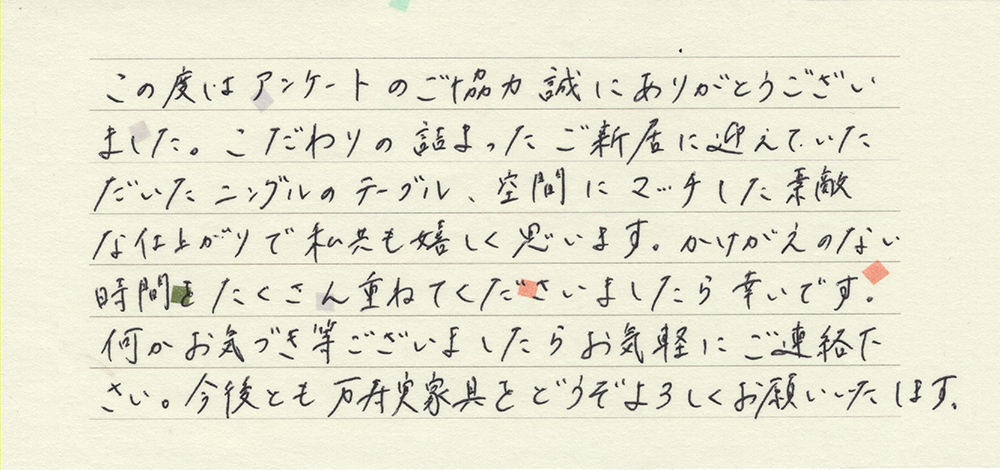 この度はアンケートのご協力誠にありがとうござい
ました。こだわりの詰まったご新居に迎えていた
だいたニングルのテーブル、空間にマッチした素敵
な仕上がりで私共も嬉しく思います。かけがえのない
時間をたくさん重ねてくださいましたら幸いです。
何かお気づき等ございましたらお気軽にご連絡下
さい。今後とも万寿実家具をどうぞよろしくお願いいたします。